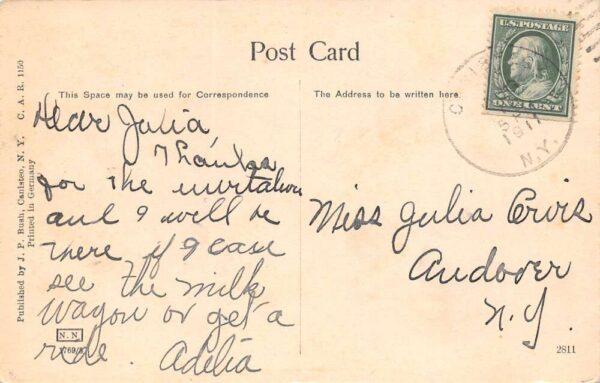 Post Card
This Space may be used for Correspondence
The Address to be written here.
U.S. POSTAGE
ONE CENT
1911
N.Y.
Published by J. P. Bush, Canisteo, N. Y. C. A. R. 1150
Printed in Germany
Dear Julia,
Thanks
for the invitation
and I will be
there if I case
see the milk
wagon or get a
ride. Adelia
Miss Julia
Andover
N.Y.
N. N.
2811